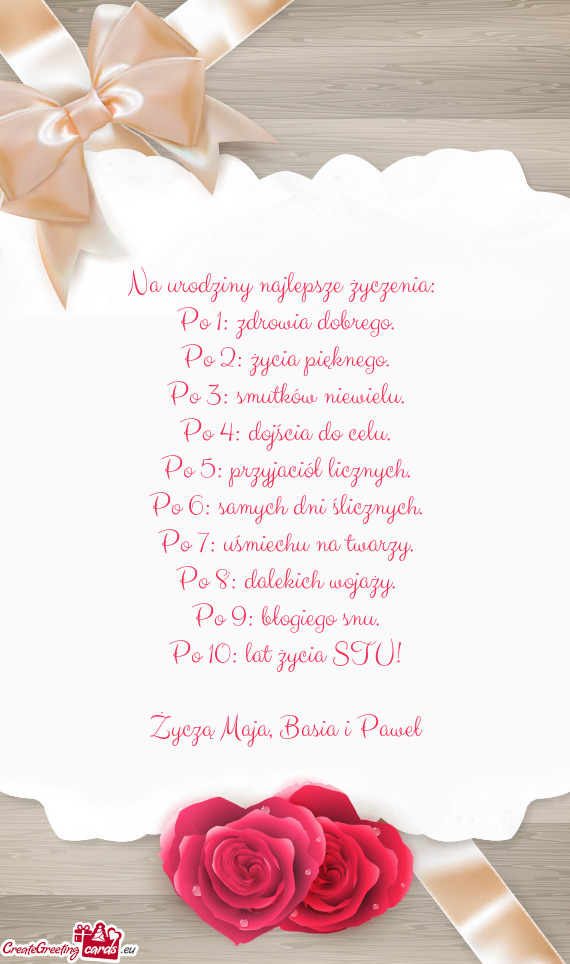 Na urodziny najlepsze życzenia:
Po 1: zdrowia dobrego.
Po 2: życia pięknego.
Po 3: smutków niewielu.
Po 4: dojścia do celu.
Po 5: przyjaciół licznych.
Po 6: samych dni ślicznych.
Po 7: uśmiechu na twarzy.
Po 8: dalekich wojaży.
Po 9: błogiego snu.
Po 10: lat życia STU!
Życzą Maja, Basia i Paweł
CreateGreeting cards .eu